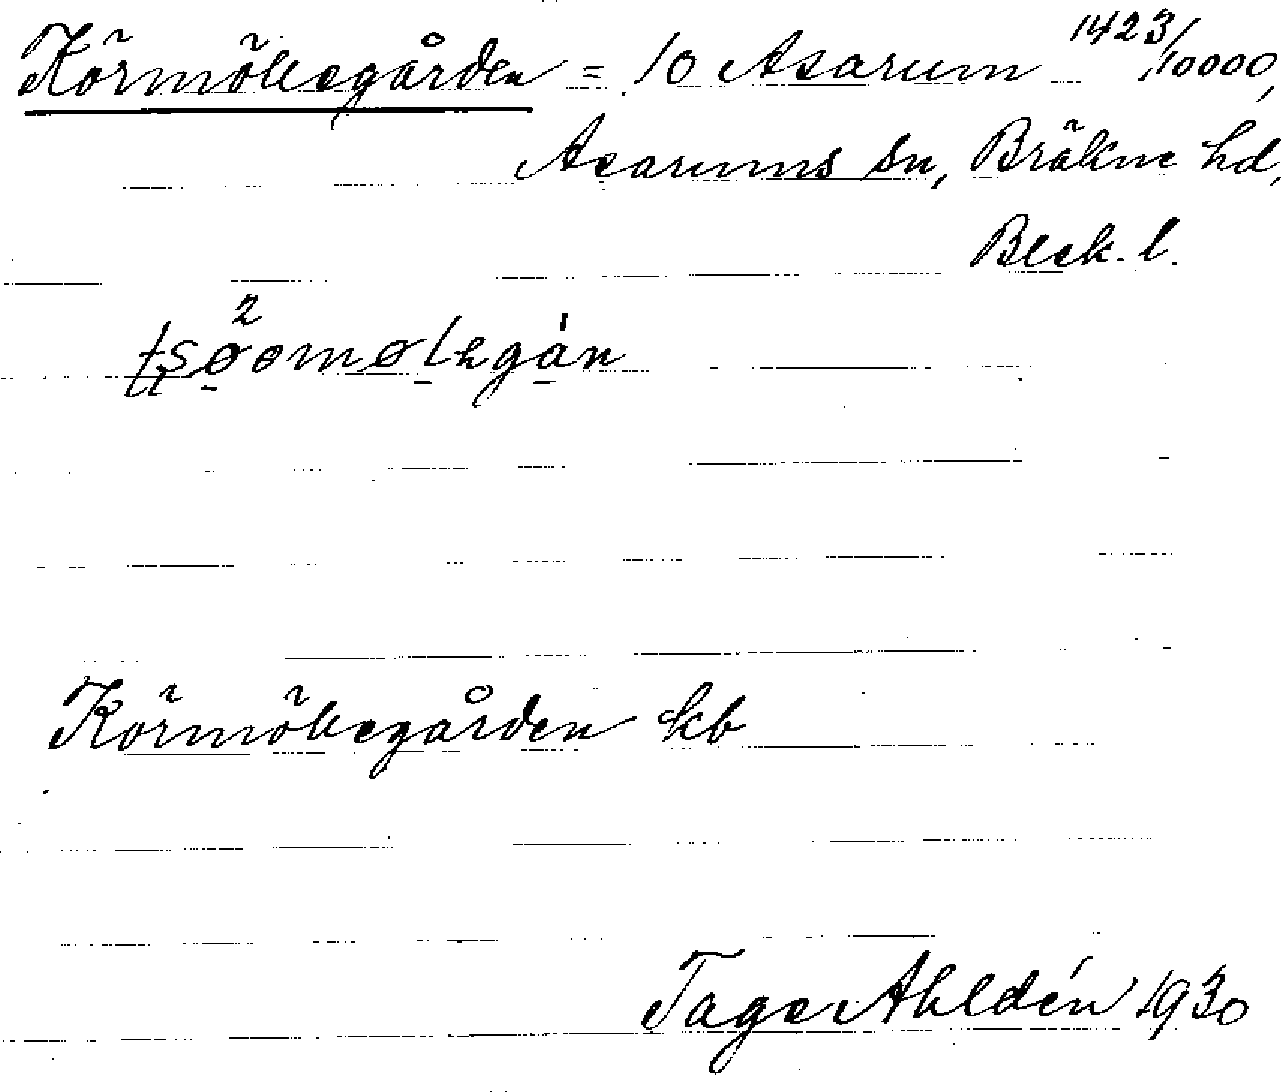 Körmöllegården = 10 Asarum 1423/10000,
Asarums sn, Bräkne hd,
Bleck. l.
Körmöllegården kb
Tage Ahldén 1930